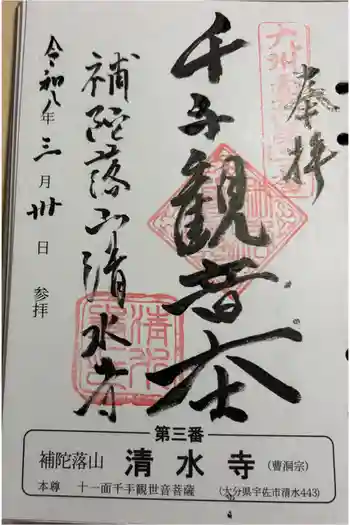 奉拝
千手觀音大士
補陀落山清水寺
令和八年三月卅日 参拝
第三番
補陀落山 清水寺 (曹洞宗)
本尊 十一面千手観世音菩薩 (大分県宇佐市清水443)